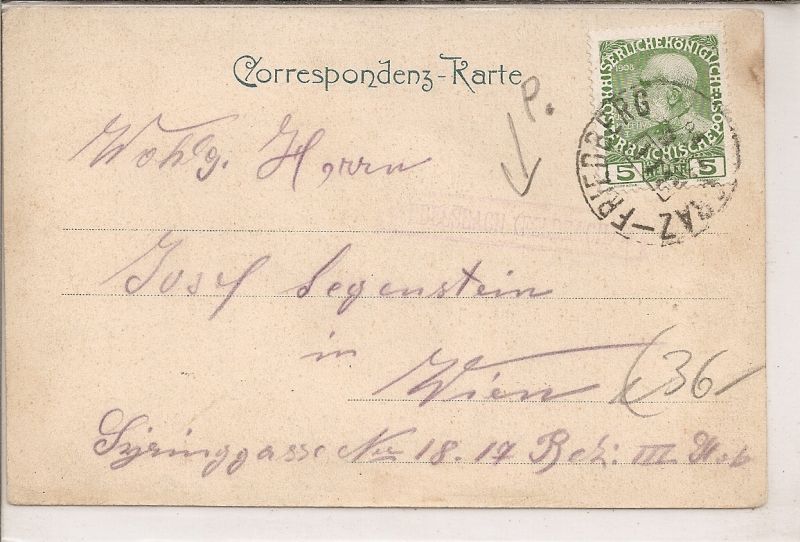 Correspondenz-Karte
P.
KAISERLICHE KÖNIGLICHE
1908
ÖSTERREICHISCHE POST
5 5
GRAZ-FRIEDBERG
Wohlg. Herrn
Josef Segenstein
in
Wien
36
No 18.17 Bez: III